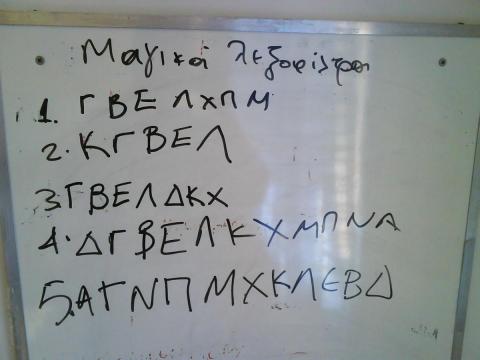 Μαγικά λεξοφίλτρα
1. Γ Β Ε Λ Χ Π Μ
2. Κ Γ Β Ε Λ
3 Γ Β Ε Λ Δ Κ Χ
4. Δ Γ Β Ε Λ Κ Χ Μ Π Ν Α
5. Α Γ Ν Π Μ Χ Κ Λ Ε Β Δ